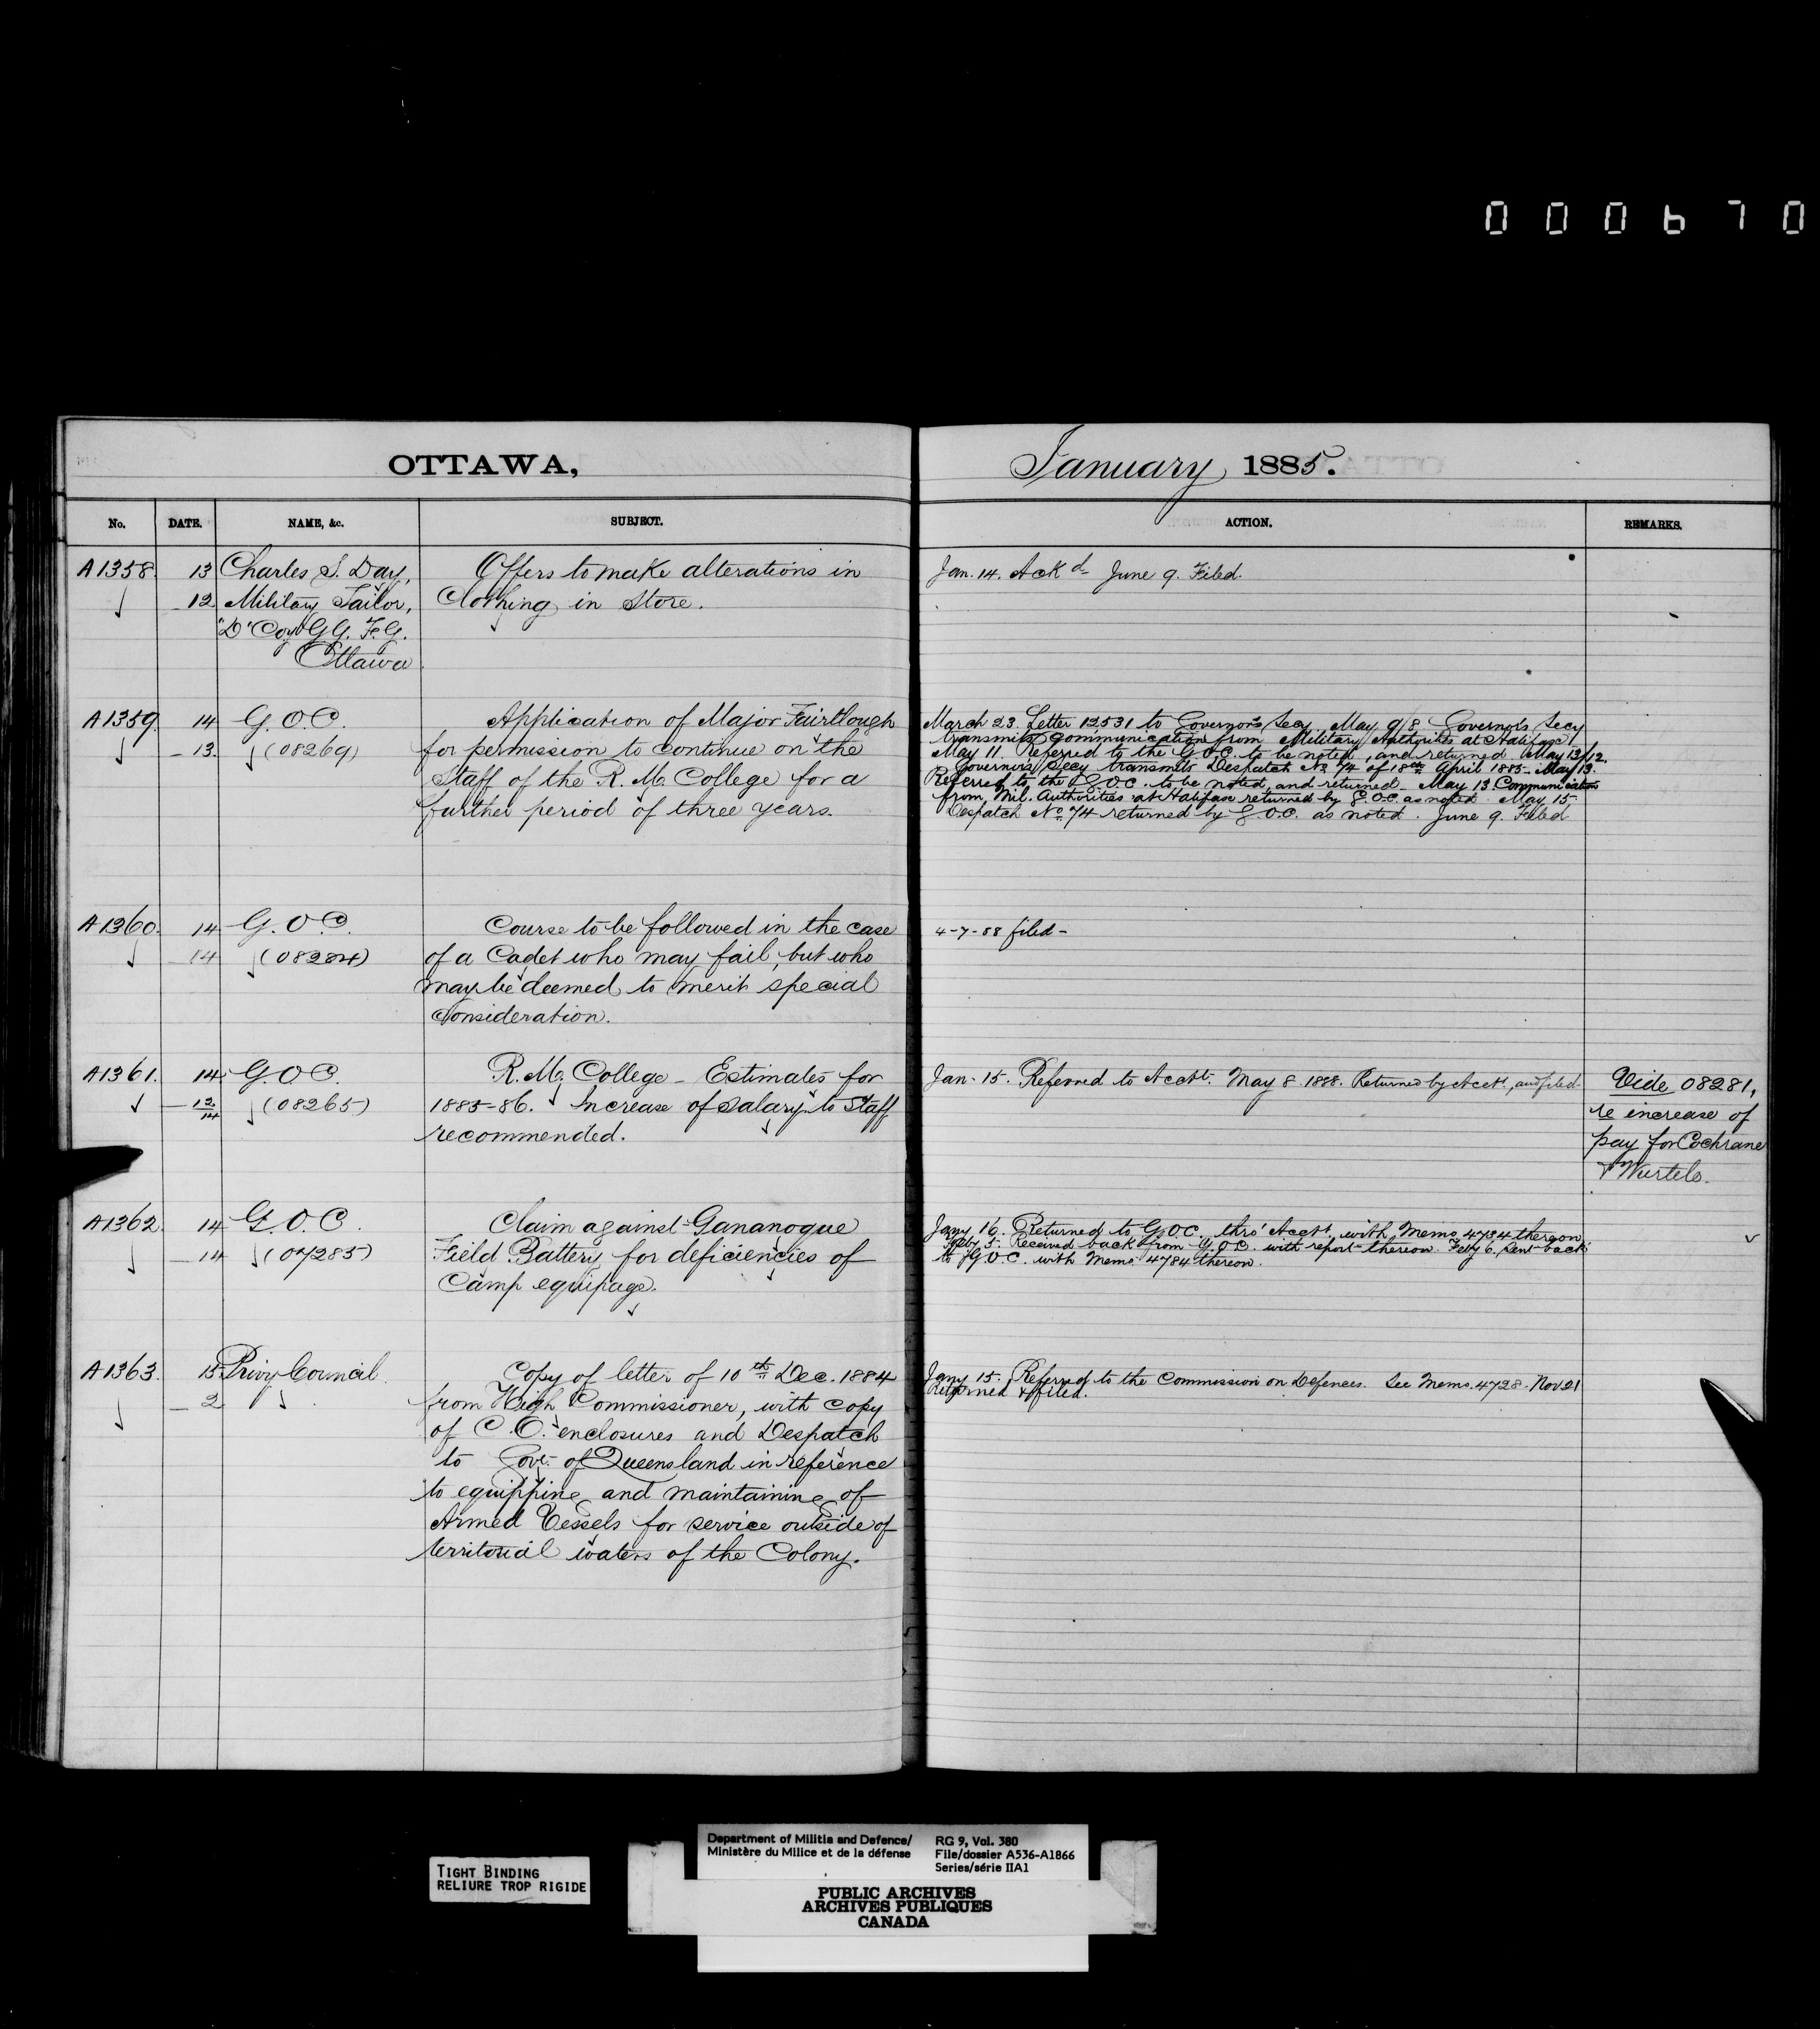 000670
OTTAWA,
January 1885.
No. DATE. NAME, &c. SUBJECT. ACTION. REMARKS.
A1358 13 Charles S. Day, Offers to make alterations in
12 Military Tailor, Clothing in Store.
"D" Coy GG. F.G.
Ottawa
Jan. 14. Ackd June 9. Filed.
A1359 14 G.O.C. Application of Major Fairtlough
13. (08269) for permission to continue on the
Staff of the R. M. College for a
further period of three years.
March 23. Letter 12531 to Governor's Secy May 9/8 Governor's Secy
transmits communication from Military Authorities at Halifax
May 11. Referred to the G.O.C. to be noted, and returned May 13/12.
Governor's Secy transmits Despatch No 74 of 18th April 1885. May 13.
Referred to the G.O.C. to be noted, and returned. May 13 Communication
from Mil. Authorities at Halifax returned by G.O.C. as noted. May 15
Despatch No. 74 returned by G.O.C. as noted. June 9. Filed
A1360 14 G.O.C. Course to be followed in the case
14 (08284) of a Cadet who may fail, but who
may be deemed to merit special
consideration.
4-7-88 filed -
A1361. 14 G.O.C. R.M. College - Estimates for
12/14 (08265) 1885-86. Increase of salary to Staff
recommended.
Jan. 15. Referred to Acctt. May 8. 1888. Returned by Acctt, and filed
Vide 08281,
re increase of
pay for Cochrane
& Wurtele.
A1362 14 G.O.C. Claim against Gananoque
14 (07285) Field Battery for deficiencies of
Camp equipage.
Jany 16. Returned to G.O.C. thro' Acctt, with Memo 4734 thereon
Feby 5. Received back from G.O.C. with report thereon. Feby 6, Sent back
to G.O.C. with Memo 4784 thereon.
A1363. 15 Privy Council Copy of letter of 10th Dec. 1884
2 from High Commissioner, with copy
of C.O. enclosures and Despatch
to Govr. of Queensland in reference
to equipping and maintaining of
Armed Vessels for service outside of
territorial waters of the Colony.
Jany 15. Referred to the Commission on Defences. See Memo. 4728. Nov 21
Returned & filed.
TIGHT BINDING
RELIURE TROP RIGIDE
Department of Militia and Defence/
Ministère du Milice et de la défense
RG 9, Vol. 380
File/dossier A536-A1866
Series/série IIA1
PUBLIC ARCHIVES
ARCHIVES PUBLIQUES
CANADA